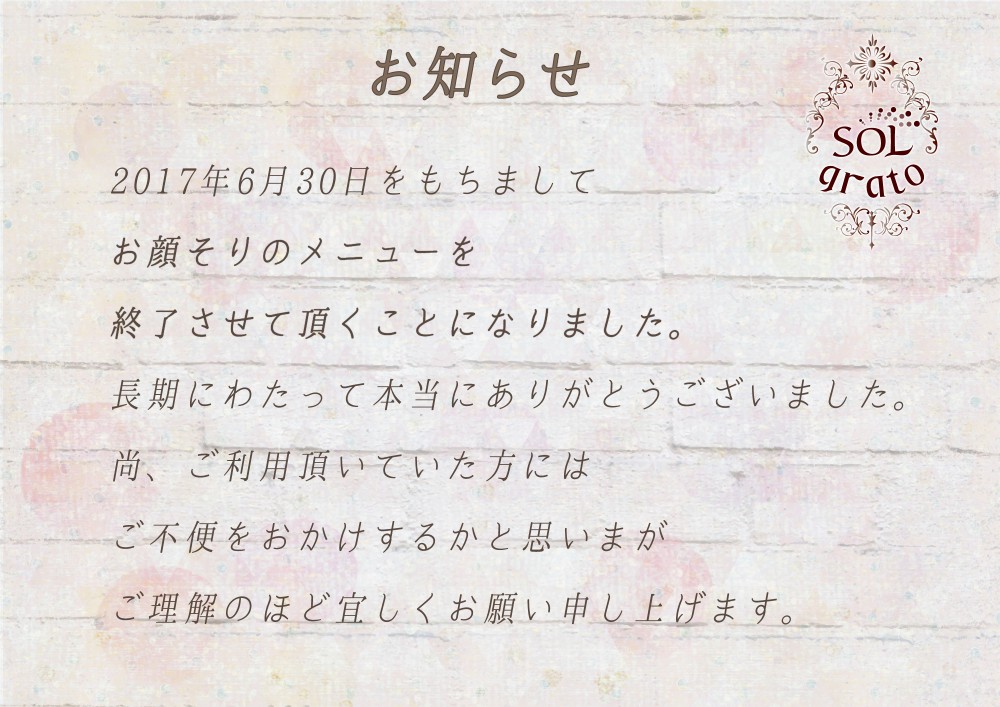 お知らせ
SOL
grato
2017年6月30日をもちまして
お顔そりのメニューを
終了させて頂くことになりました。
長期にわたって本当にありがとうございました。
尚、ご利用頂いていた方には
ご不便をおかけするかと思いまが
ご理解のほど宜しくお願い申し上げます。